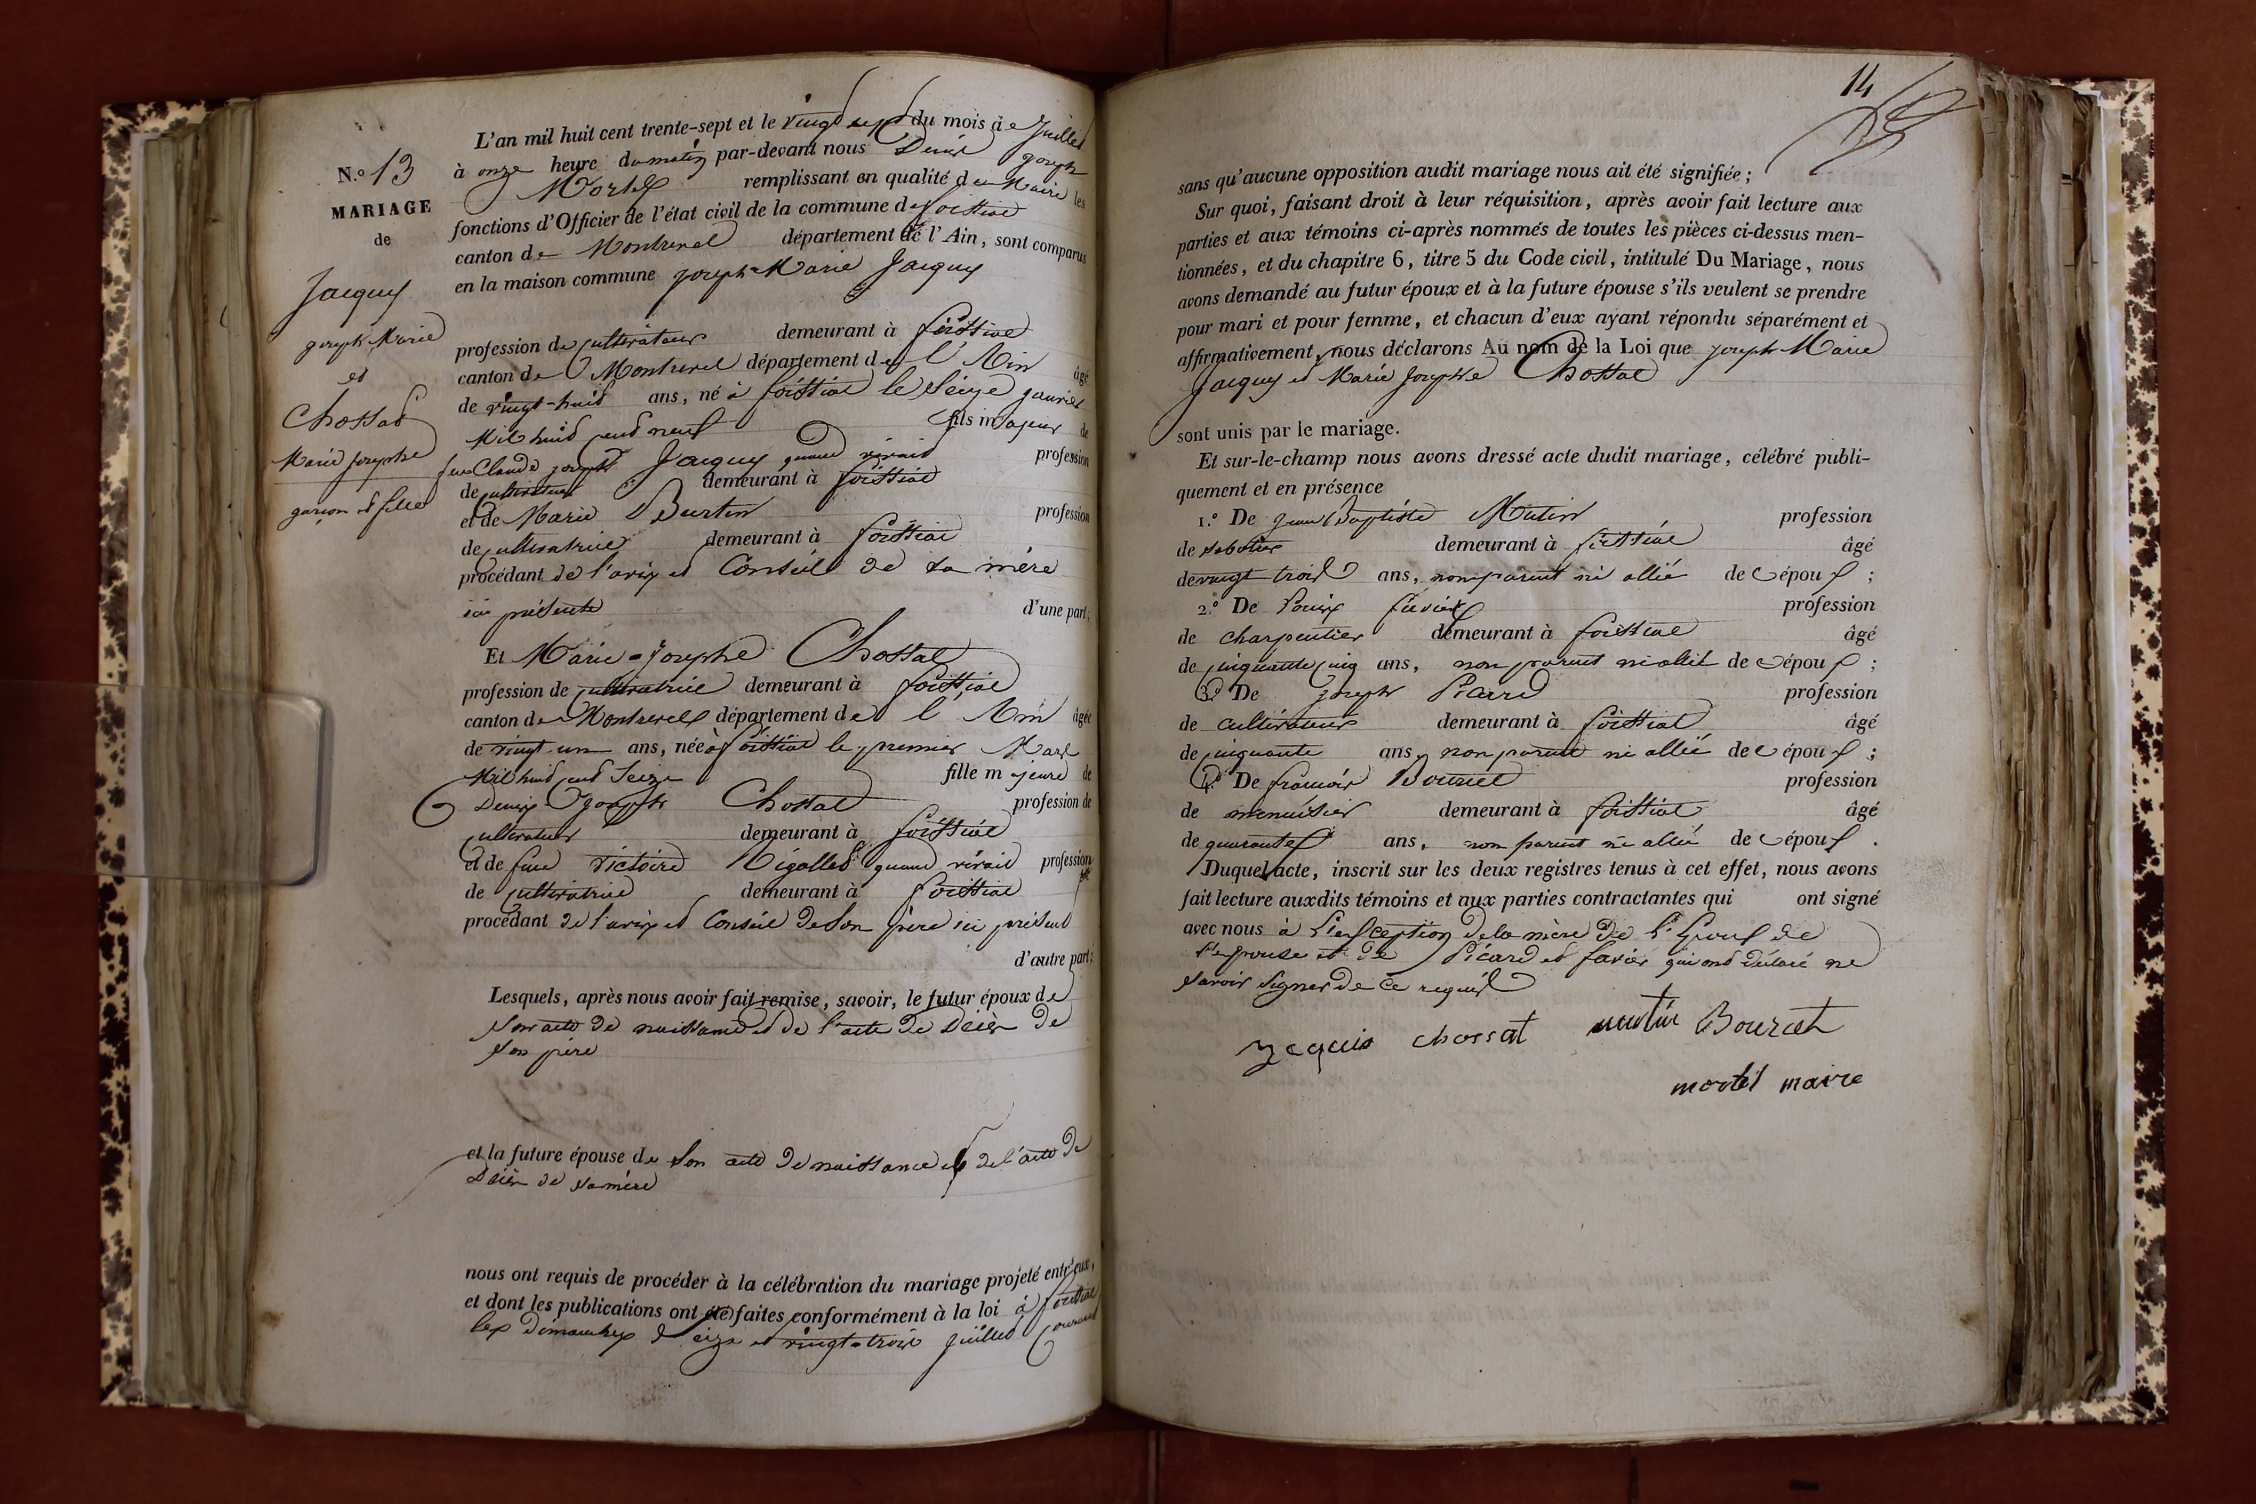 N.º 13
MARIAGE
de
Jacquy
joseph Marie
et
Chossat
Marie Josephe
garçon et fille
L'an mil huit cent trente-sept et le vingt sept du mois de Juillet
à onze heure du matin par-devant nous Denis joseph
Mortel remplissant en qualité de Maire les
fonctions d'Officier de l'état civil de la commune de foissiat
canton de Montrevel département de l'Ain, sont comparus
en la maison commune joseph-Marie Jacquy
profession de cultivateur demeurant à foissiat
canton de Montrevel département de l'Ain âgé
de vingt-huit ans, né à foissiat le seize janvier
Mil huit cent neuf fils majeur de
feu Claude joseph Jacquy quand vivait profession
de cultivateur demeurant à foissiat
et de Marie Burtin profession
de cultivatrice demeurant à foissiat
procédant de l'avis et Conseil de sa mère
ici présente d'une part;
Et Marie-Josephe Chossat
profession de cultivatrice demeurant à foissiat
canton de Montrevel département de l'Ain âgée
de vingt-un ans, née à foissiat le premier Mars
Mil huit cent seize fille majeure de
Denis Joseph Chossat profession de
cultivateur demeurant à foissiat
et de feue victoire quand vivait profession
de cultivatrice demeurant à foissiat
procédant de l'avis et Conseil de son père ici présent
d'autre part;
Lesquels, après nous avoir fait remise, savoir, le futur époux de
son acte de naissance et de l'acte de décès de
son père
et la future épouse de son acte de naissance et de l'acte de
décès de sa mère
nous ont requis de procéder à la célébration du mariage projeté entr'eux,
et dont les publications ont été faites conformément à la loi à foissiat
les dimanches seize et vingt-trois juillet courant
14
sans qu'aucune opposition audit mariage nous ait été signifiée;
Sur quoi, faisant droit à leur réquisition, après avoir fait lecture aux
parties et aux témoins ci-après nommés de toutes les pièces ci-dessus men-
tionnées, et du chapitre 6, titre 5 du Code civil, intitulé Du Mariage, nous
avons demandé au futur époux et à la future épouse s'ils veulent se prendre
pour mari et pour femme, et chacun d'eux ayant répondu séparément et
affirmativement, nous déclarons Au nom de la Loi que joseph Marie
Jacquy et Marie Josephe Chossat
sont unis par le mariage.
Et sur-le-champ nous avons dressé acte dudit mariage, célébré publi-
quement et en présence
1.º De jean Baptiste profession
de sabotier demeurant à foissiat âgé
de vingt trois ans, non parent ni allié de s épou x;
2.º De Louis profession
de charpentier demeurant à foissiat âgé
de cinquante cinq ans, non parent ni allié de s épou x;
3.º De joseph profession
de cultivateur demeurant à foissiat âgé
de cinquante ans, non parent ni allié de s épou x;
4.º De françois Bourcet profession
de menuisier demeurant à foissiat âgé
de quarante ans, non parent ni allié de s épou x.
Duquel acte, inscrit sur les deux registres tenus à cet effet, nous avons
fait lecture auxdits témoins et aux parties contractantes qui ont signé
avec nous à l'exception de la mère de l'époux de
l'epouse et de Picard et favier qui ont déclaré ne
savoir signer de ce requis
Jacquis chossat Bourcet
mortel maire